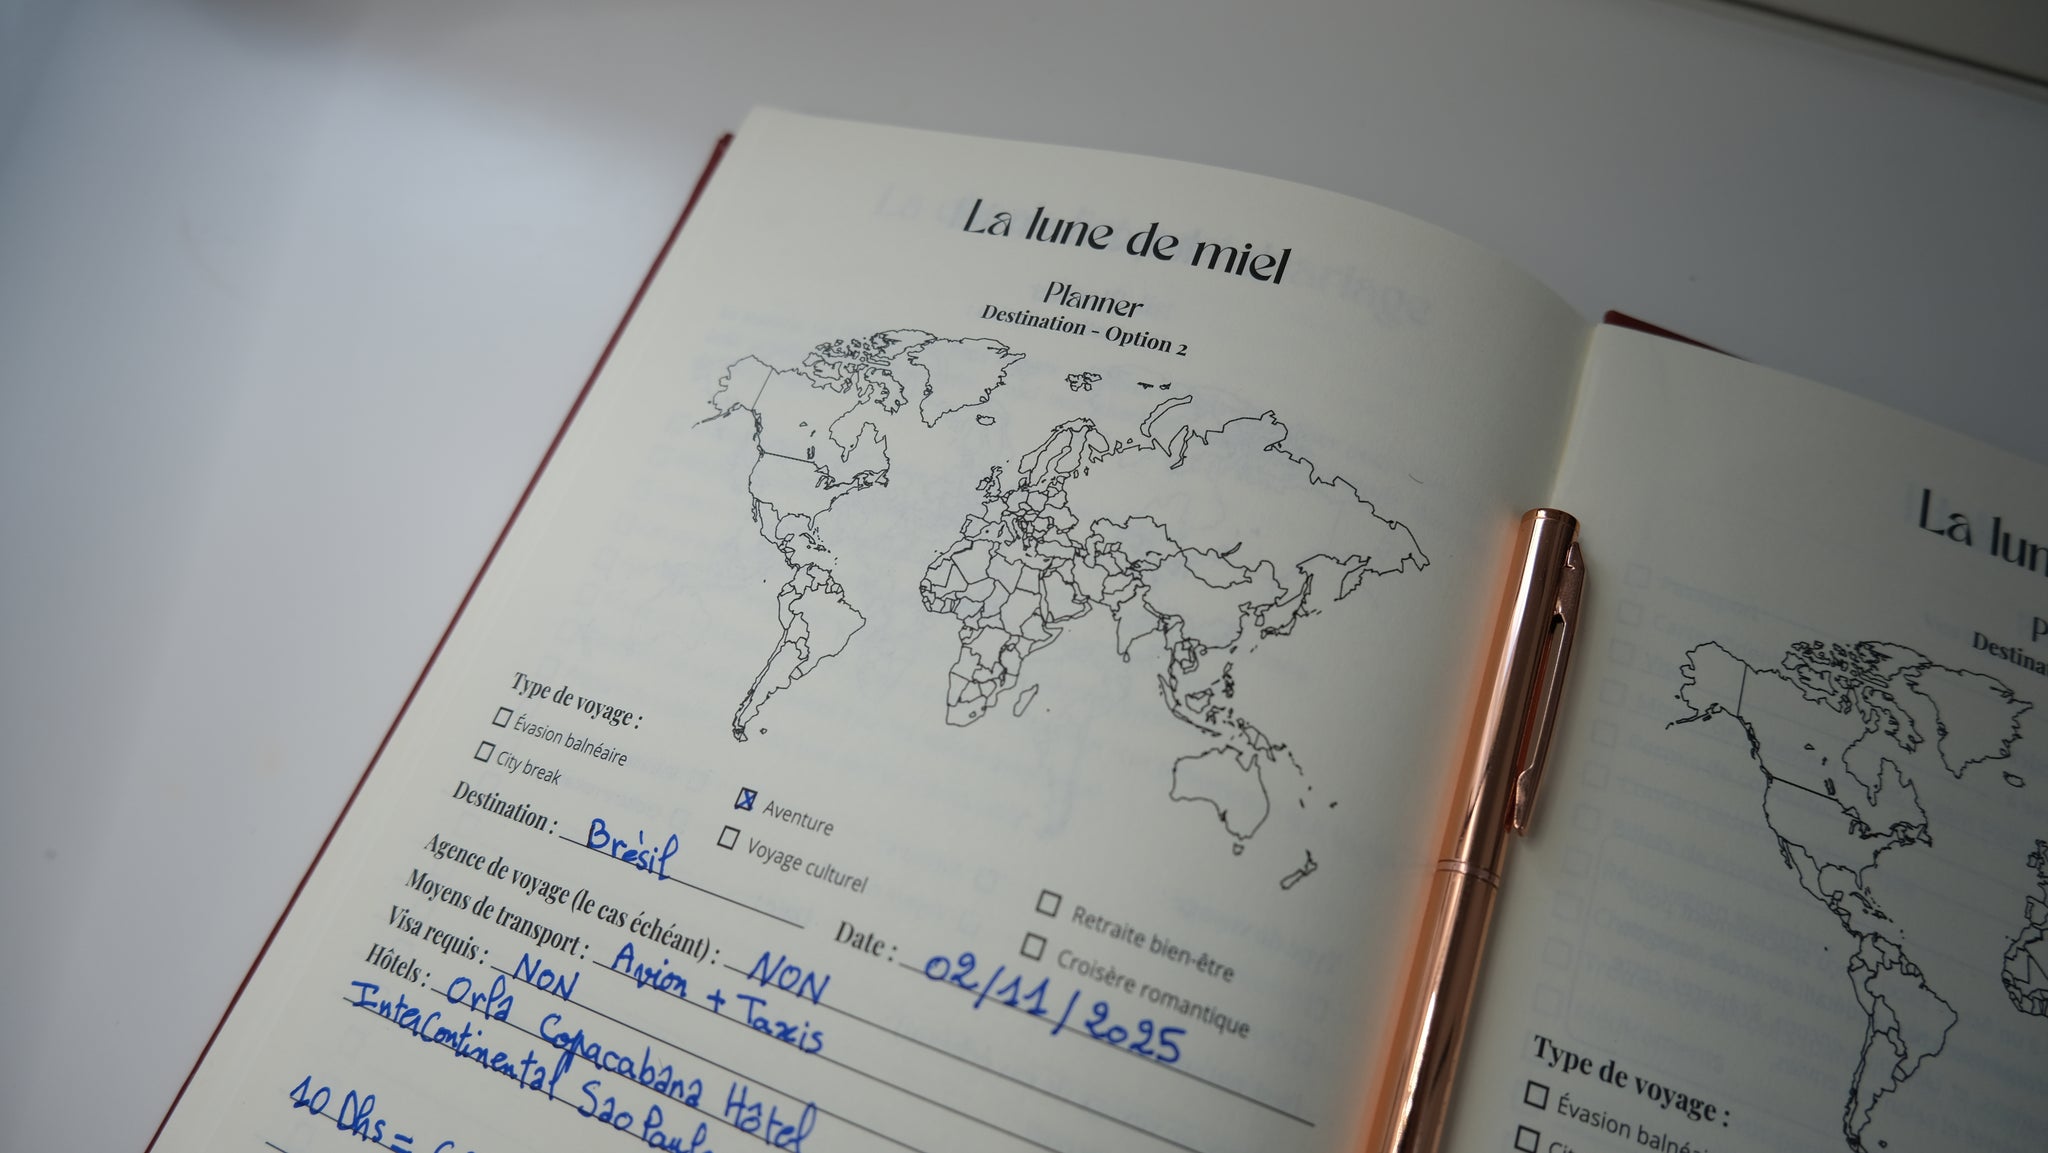 La lune de miel
Planner
Destination - Option 2
Type de voyage :
☐ Évasion balnéaire
☐ City break
☒ Aventure
☐ Voyage culturel
☐ Retraite bien-être
☐ Croisère romantique
Destination : Brèsil
Date : 02/11/2025
Agence de voyage (le cas échéant) : NON
Moyens de transport : Avion + Taxis
Visa requis : NON
Hôtels : Orla Copacabana Hôtel
InterContinental Sao Paul
10 Dhs =
La lun
P
Destina
Type de voyage :
☐ Évasion balné
☐ Ci